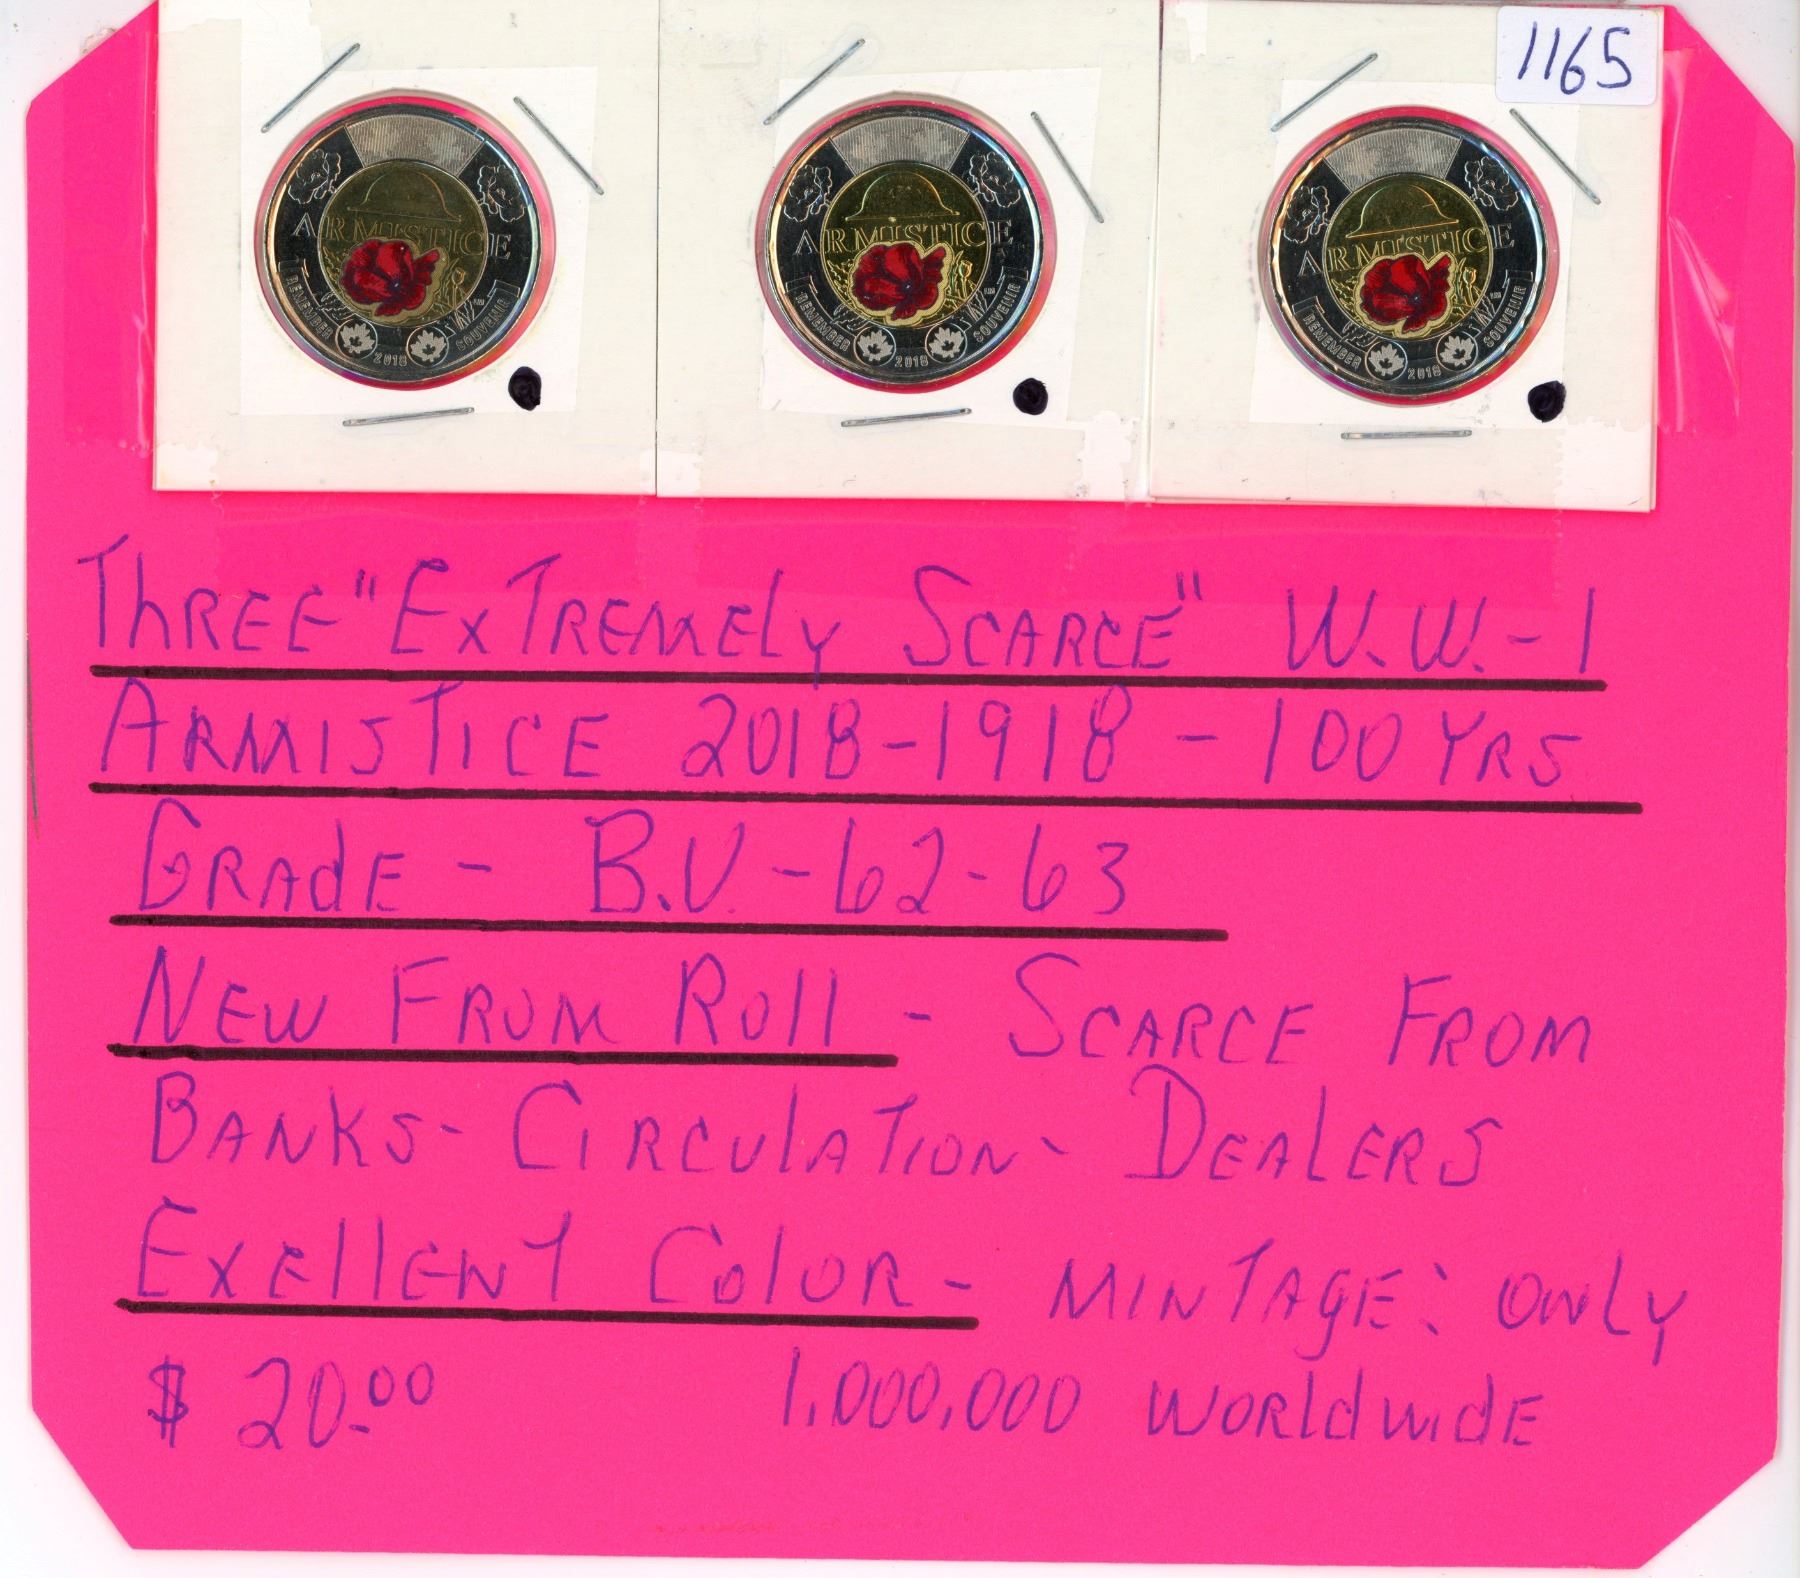 1165
ARMISTICE
REMEMBER
2018
SOUVENIR
ARMISTICE
REMEMBER
2018
SOUVENIR
ARMISTICE
REMEMBER
2018
SOUVENIR
THREE "EXTREMELY SCARCE" W.W.-1
ARMISTICE 2018-1918 - 100 YRS
GRADE - B.U. -62-63
NEW FROM ROLL - SCARCE FROM
BANKS- CIRCULATION- DEALERS
EXELLENT COLOR - MINTAGE: ONLY
$ 20.00 1,000,000 WORLDWIDE